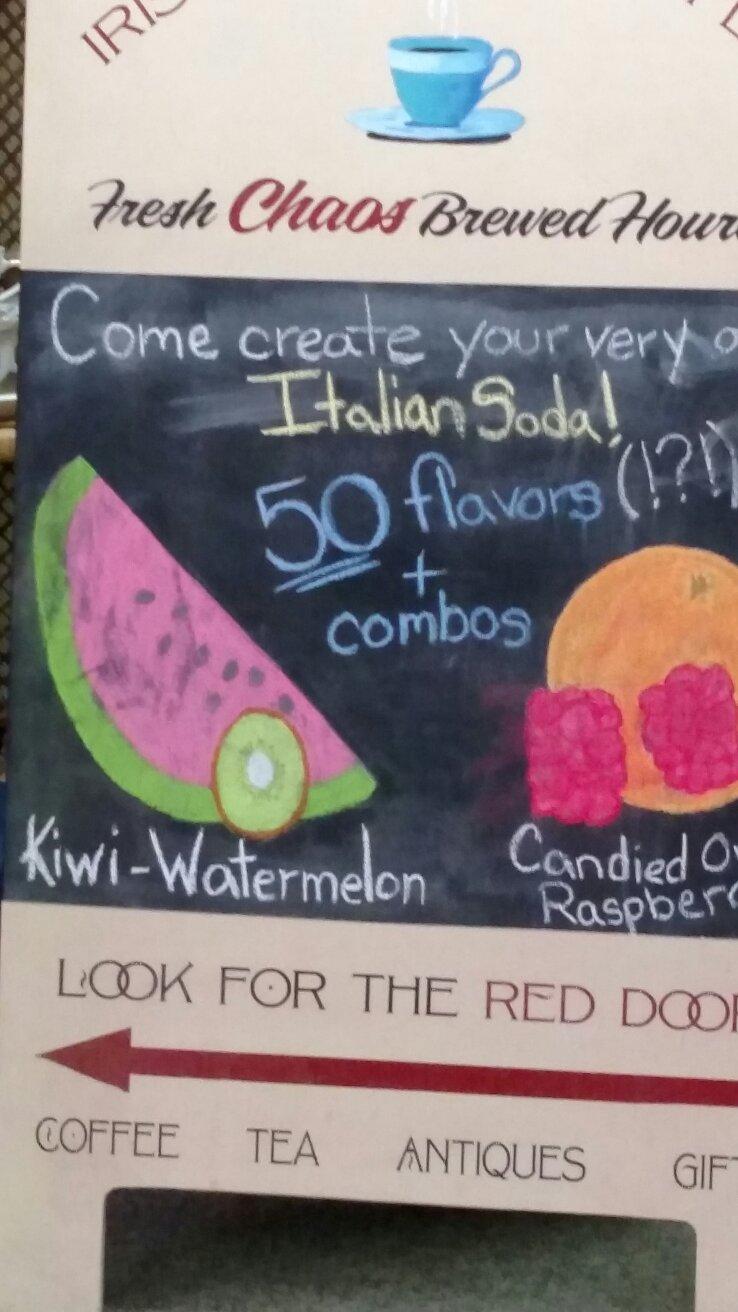 Fresh Chaos Brewed
Come create your very
Italian Soda!
50 flavors (!?!)
+
combos
Kiwi-Watermelon
Candied
LOOK FOR THE RED
COFFEE TEA ANTIQUES